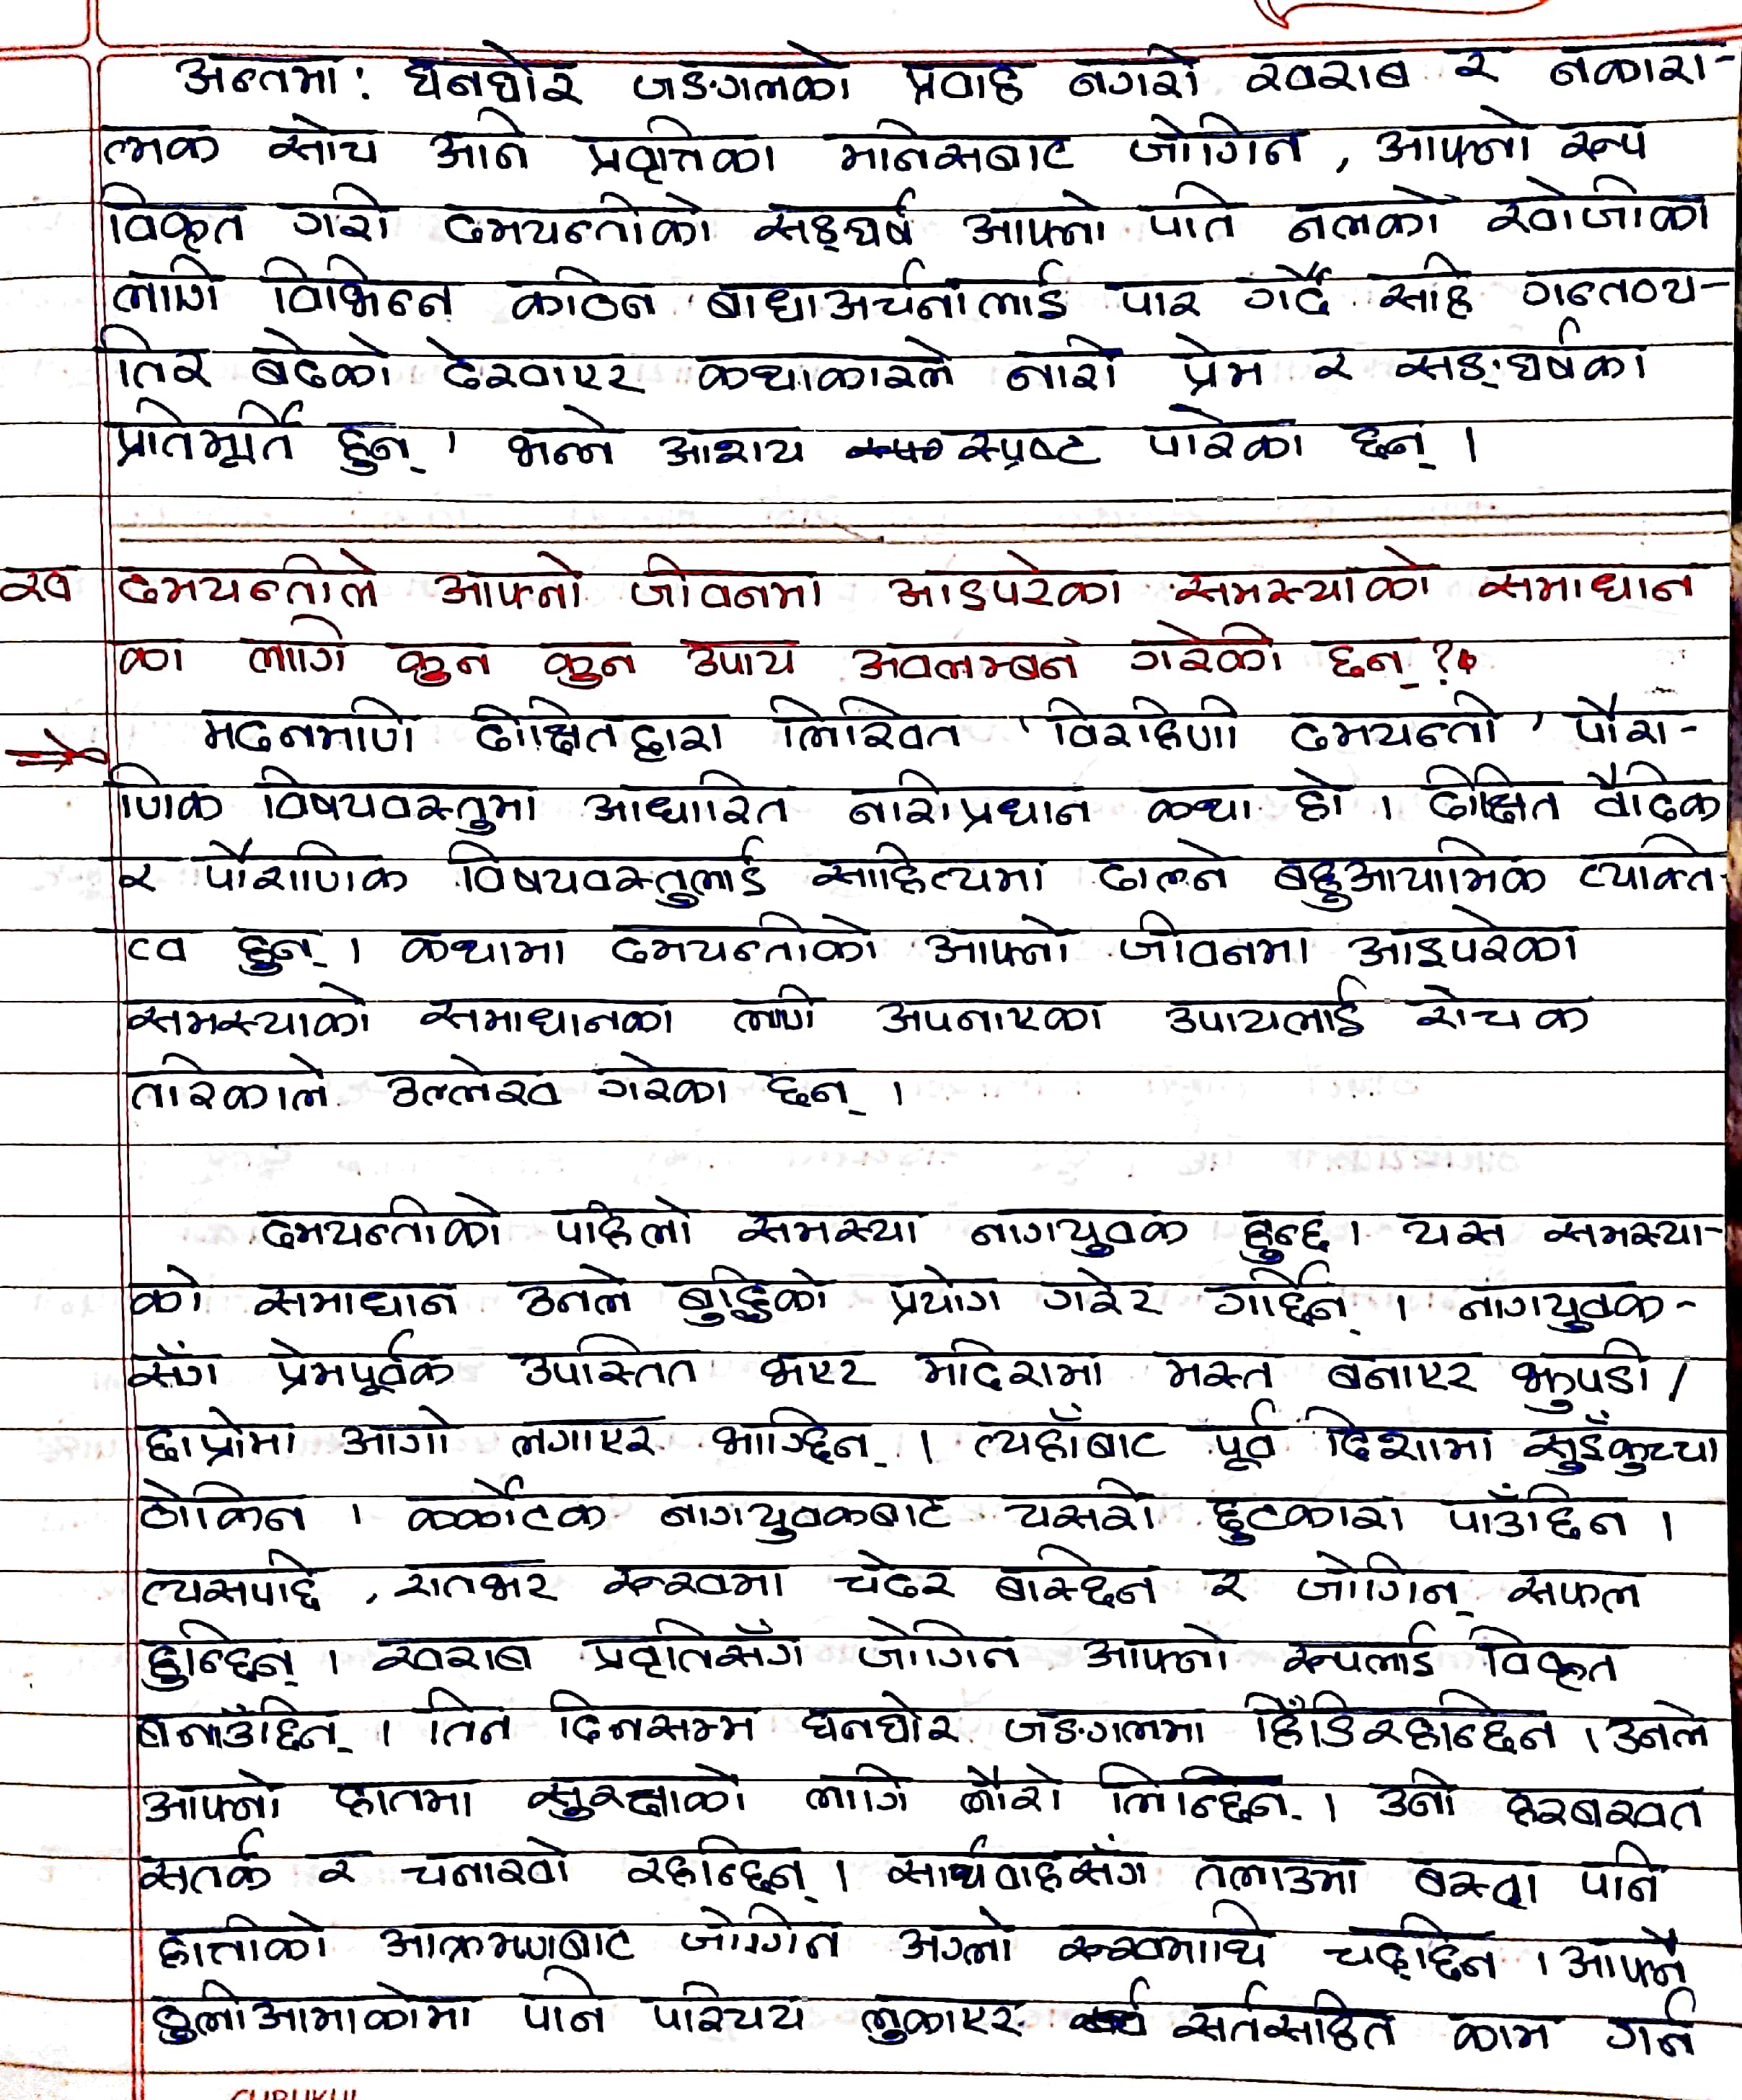 अन्तमा: घनघोर जङ्गलको प्रवाह नगरी खराब र नकारा-
त्मक सोच आने प्रवृत्तिका मानिसबाट जोगिन, आफ्नो रूप
विकृत गरी दमयन्तीको सङ्घर्ष आफ्नो पति नलको खोजीका
लागि विभिन्न कठिन बाधाअर्चनालाई पार गर्दै सहि गन्तव्य-
तिर बढेको देखाएर कथाकारले नारी प्रेम र सङ्घर्षका
प्रतिमूर्ति हुन् । भन्ने आशय स्पष्ट पारेका छन् ।
ख दमयन्तीले आफ्नो जीवनमा आइपरेका समस्याको समाधान
का लागि कुन कुन उपाय अवलम्बन गरेकी छन् ?
मदनमणि दीक्षितद्वारा लिखित 'विरहिणी दमयन्ती' पौरा-
णिक विषयवस्तुमा आधारित नारीप्रधान कथा हो । दीक्षित वैदिक
र पौराणिक विषयवस्तुलाई साहित्यमा ढाल्ने बहुआयामिक व्यक्ति
त्व हुन् । कथामा दमयन्तीको आफ्नो जीवनमा आइपरेका
समस्याको समाधानका लागि अपनाएका उपायलाई रोचक
तरिकाले उल्लेख गरेका छन् ।
दमयन्तीको पहिलो समस्या नागयुवक हुन्छ । यस समस्या-
को समाधान उनले बुद्धिको प्रयोग गरेर गर्छिन् । नागयुवक-
सँग प्रेमपूर्वक उपस्तित भएर मदिरामा मस्त बनाएर झुपडी/
छाप्रोमा आगो लगाएर भाग्छिन् । त्यहाँबाट पूर्व दिशामा सुइँकुच्चा
ठोकिन । कर्कोटक नागयुवकबाट यसरी छुटकारा पाउँछिन ।
त्यसपछि, रातभर रूखमा चढेर बस्छिन र जोगिन् सफल
हुन्छिन् । खराब प्रवृतिसँग जोगिन आफ्नो रूपलाई विकृत
बनाउँछिन् । तिन दिनसम्म घनघोर जङ्गलमा हिँडिरहन्छिन । उनले
आफ्नो हातमा सुरक्षाको लागि लौरो लिन्छिन् । उनी हरबखत
सतर्क र चनाखो रहन्छिन् । सार्थवाहसँग तलाउमा बस्दा पनि
हात्तीको आक्रमणबाट जोगिन अग्लो रूखमाथि चढ्छिन । आफ्नै
ठुलीआमाकोमा पनि परिचय लुकाएर सर्तसहित काम गर्न